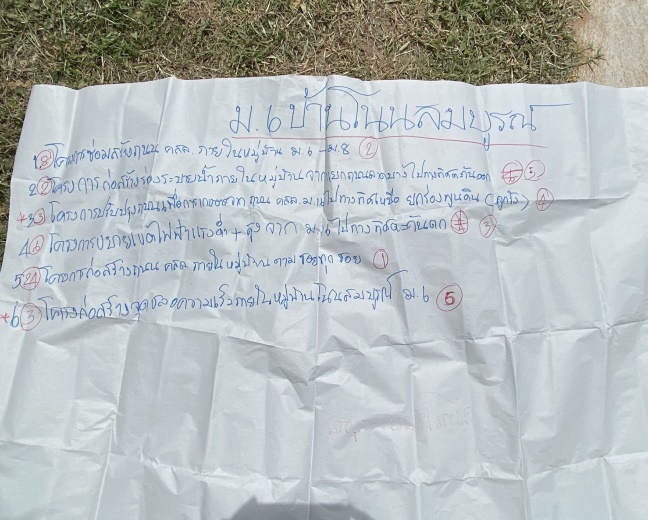 ม.6 บ้านโนนสมบูรณ์
1 8 โครงการซ่อมสร้างถนน คสล. ภายในหมู่บ้าน ม.6 - ม.8 2
2 โครงการก่อสร้างร่องระบายน้ำภายในหมู่บ้าน จากแยกถนนลาดยางไปทางทิศตะวันออก 5
*3 3 โครงการปรับปรุงถนนเพื่อการเกษตรจาก ถนน คสล. ม.6 ไปทางทิศเหนือ ยกร่องพูนดิน (ลูกรัง)
4 6 โครงการขยายเขตไฟฟ้าแรงต่ำ + สูง จาก ม.6 ไปทางทิศตะวันตก 3
5 24 โครงการก่อสร้างถนน คสล. ภายในหมู่บ้าน ตาม ซอยทุกซอย 1
*6 3 โครงก่อสร้างจุดชะลอความเร็วภายในหมู่บ้านโนนสมบูรณ์ ม.6 5